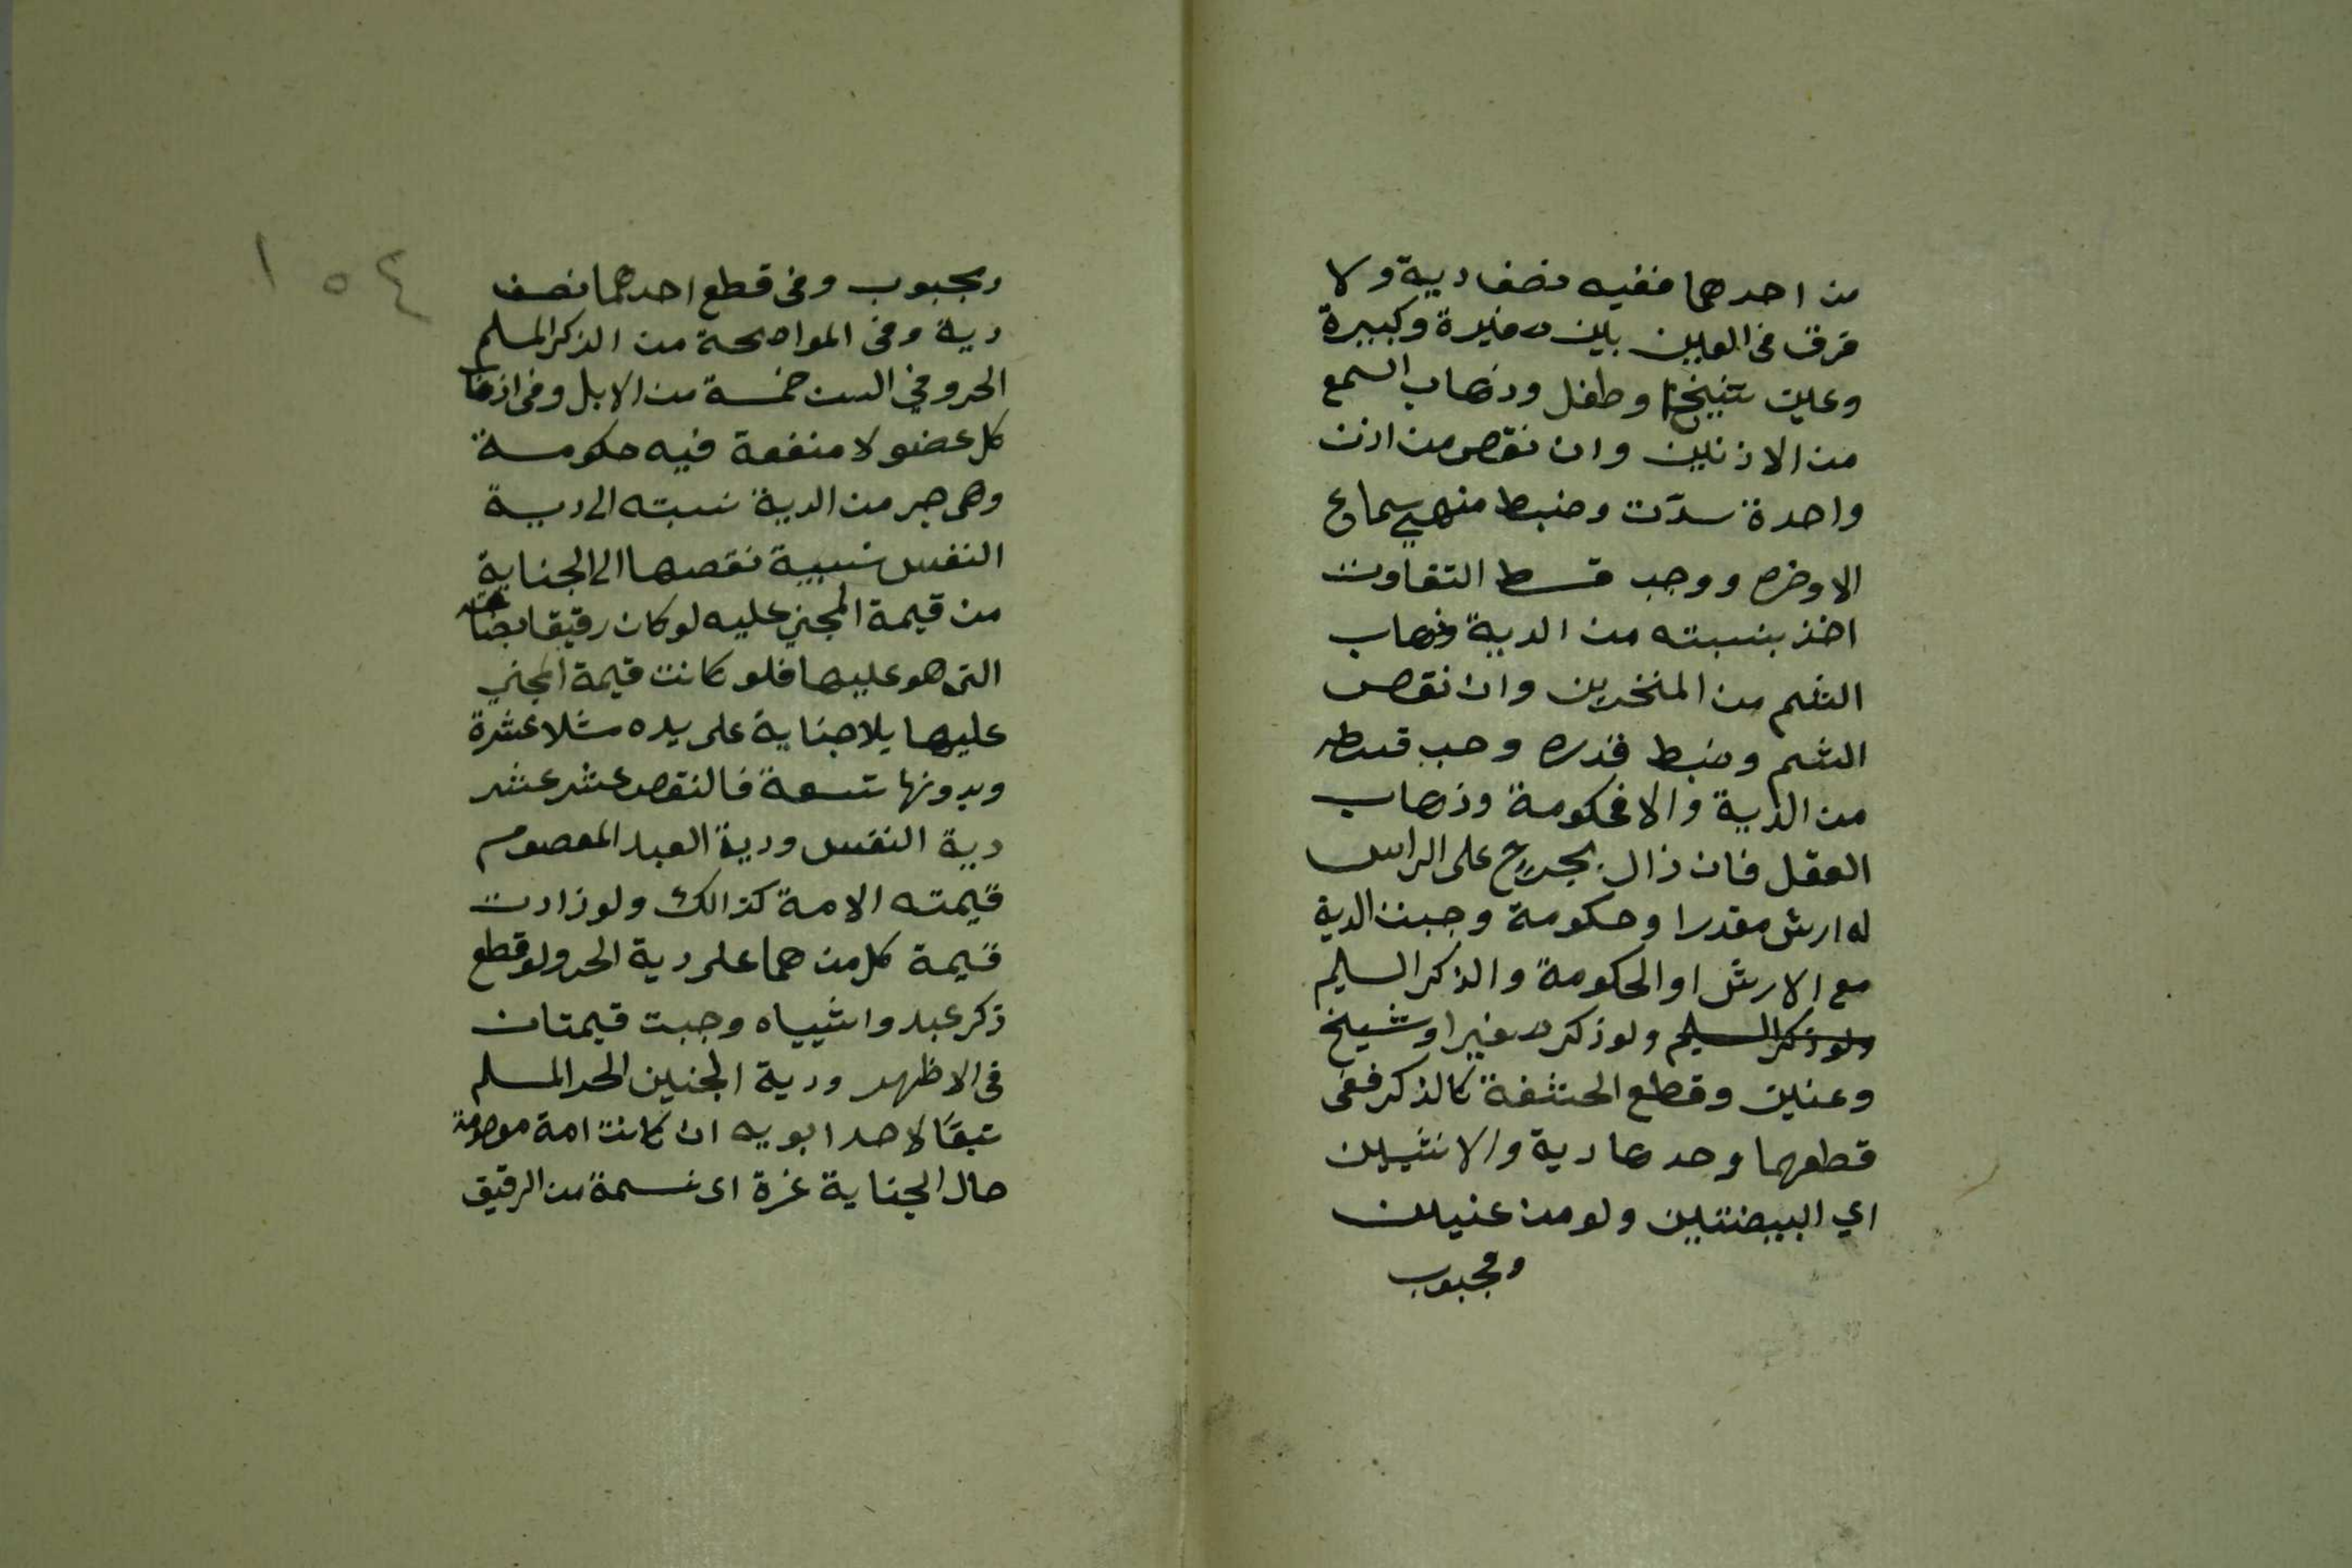 من احدهما ففيه نصف دية ولا
فرق في العين بين صغيرة وكبيرة
وعين شيخ وطفل وذهاب السمع
من الاذنين وان نقص من اذن
واحدة سدت وضبط منهي سماع
الاوخره ووجب قسط التفاوت
اخذ بنسبته من الدية وذهاب
الشم من المنخرين وان نقص
الشم وضبط قدره وجب قسطه
من الدية والا فحكومة وذهاب
العقل فان زال بجرح على الراس
له ارش مقدرا وحكومة وجبت الدية
مع الارش او الحكومة والذكر السليم
ولو ذكر السليم ولو ذكر صغيرا وشيخ
وعنين وقطع الحشفة كالذكر ففي
قطعهما وحدها دية والانثيين
اي البيضتين ولو من عنين
ومجبوب
١٥٤
ومجبوب وفي قطع احدهما نصف
دية وفي المواضحة من الذكر المسلم
الحر وفي السن خمسة من الابل وفي اذهاب
كل عضو لا منفعة فيه حكومة
وهي جبر من الدية نسبته الى دية
النفس نسبية نقصها الى الجناية
من قيمة المجني عليه لو كان رقيقا بصفاته
التي هو عليها فلو كانت قيمة المجني
عليها بلا جناية على يده مثلا عشرة
وبدونها تسعة فالنقص عشر عشر
دية النفس ودية العبد المعصوم
قيمته الامة كذالك ولو زادت
قيمة كل من هما على دية الحر ولو قطع
ذكر عبد وانثيياه وجبت قيمتان
في الاظهر ودية الجنين الحر المسلم
تبعًا لاحد ابويه ان كانت امة معصومة
حال الجناية غرة اى نسمة من الرقيق